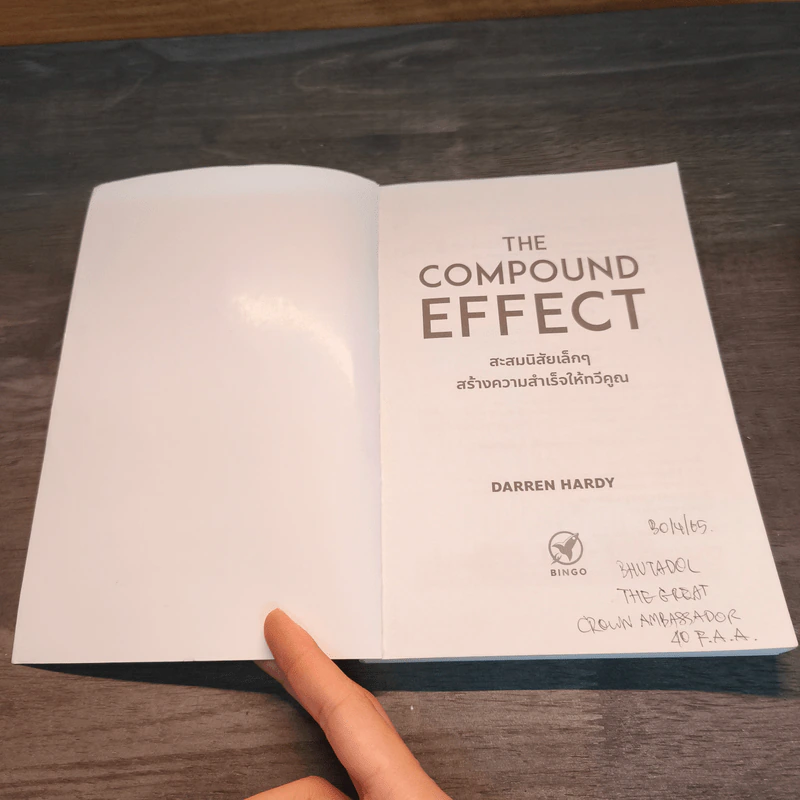 THE
COMPOUND
EFFECT
สะสมนิสัยเล็กๆ
สร้างความสำเร็จให้ทวีคูณ
DARREN HARDY
BINGO
30/4/65.
BHUTADOL
THE GREAT
CROWN AMBASSADOR
40 F.A.A.